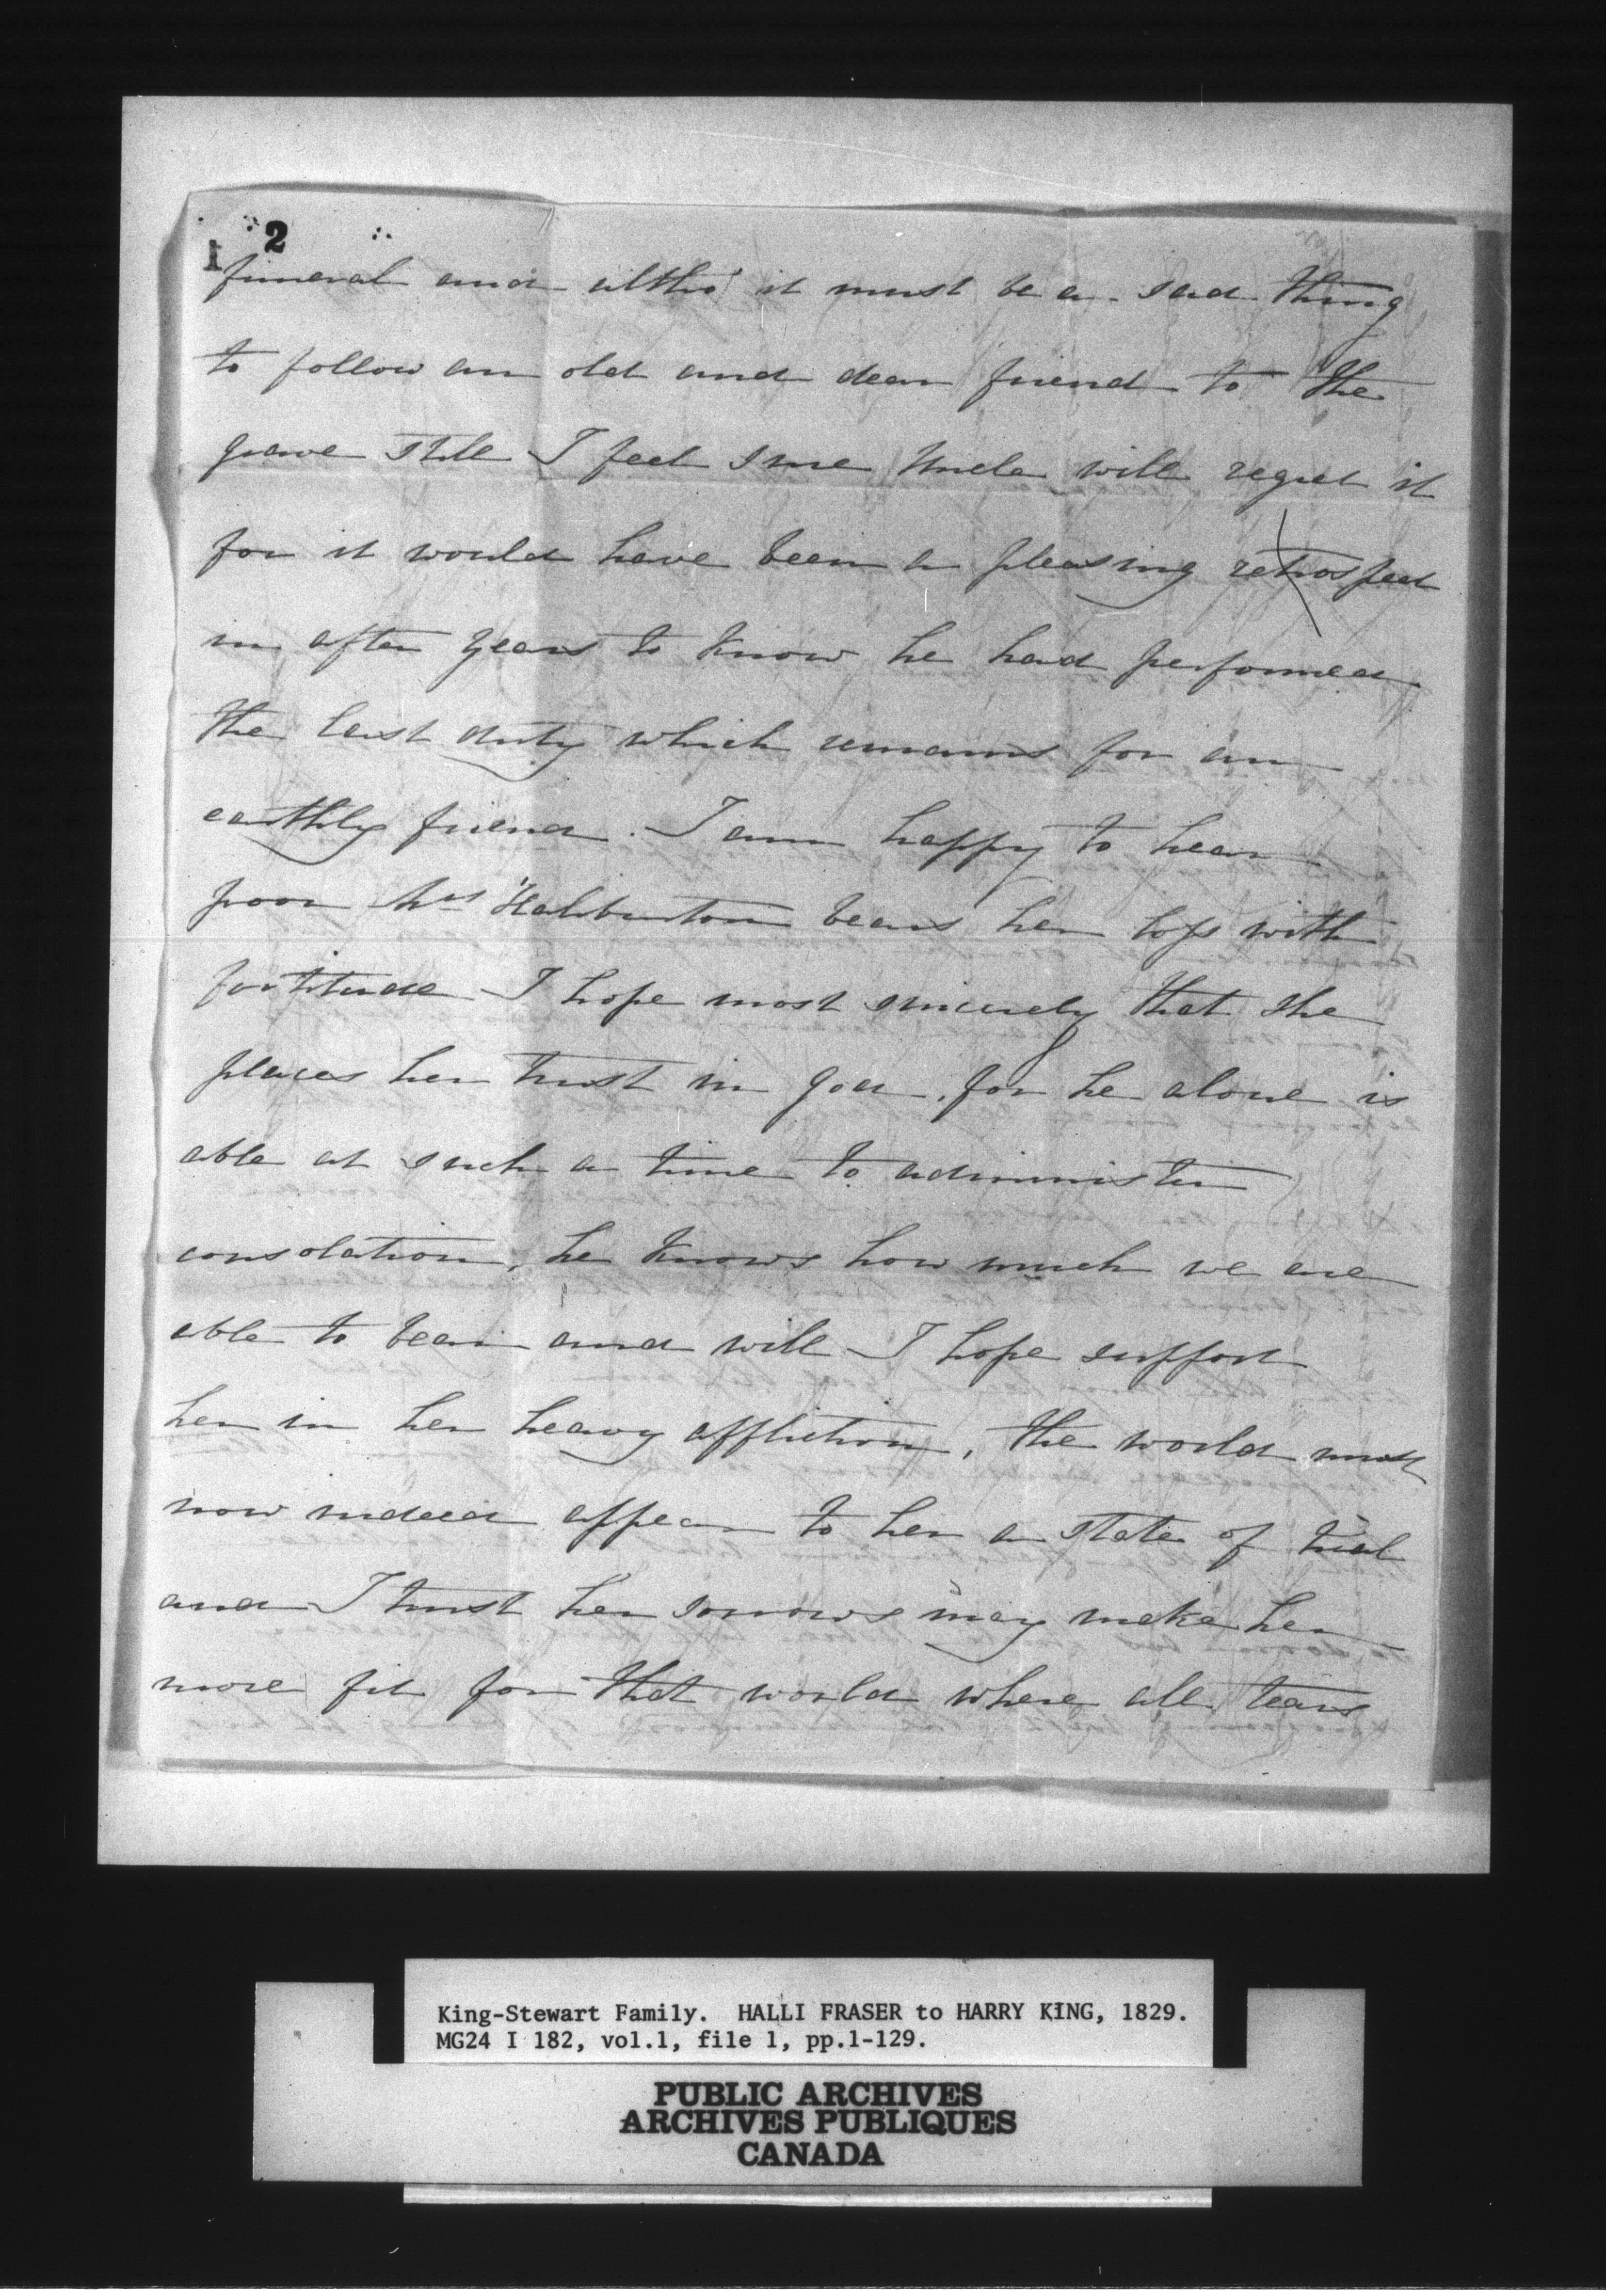 1 2
funeral and altho' it must be a sad thing
to follow an old and dear friend to the
grave still I feel sure Uncle will regret it
for it would have been a pleasing retrospect
in after years to know he had performed
the last duty which remains for an
earthly friend. I am happy to hear
poor Mrs Haliburton bears her loss with
fortitude I hope most sincerely that she
places her trust in God, for he alone is
able at such a time to administer
consolation, he knows how much we are
able to bear and will I hope support
her in her heavy affliction, the world must
now indeed appear to her a state of trial
and I trust her sorrows may make her
more fit for that world where all tears
King-Stewart Family. HALLI FRASER to HARRY KING, 1829.
MG24 I 182, vol.1, file 1, pp.1-129.
PUBLIC ARCHIVES
ARCHIVES PUBLIQUES
CANADA